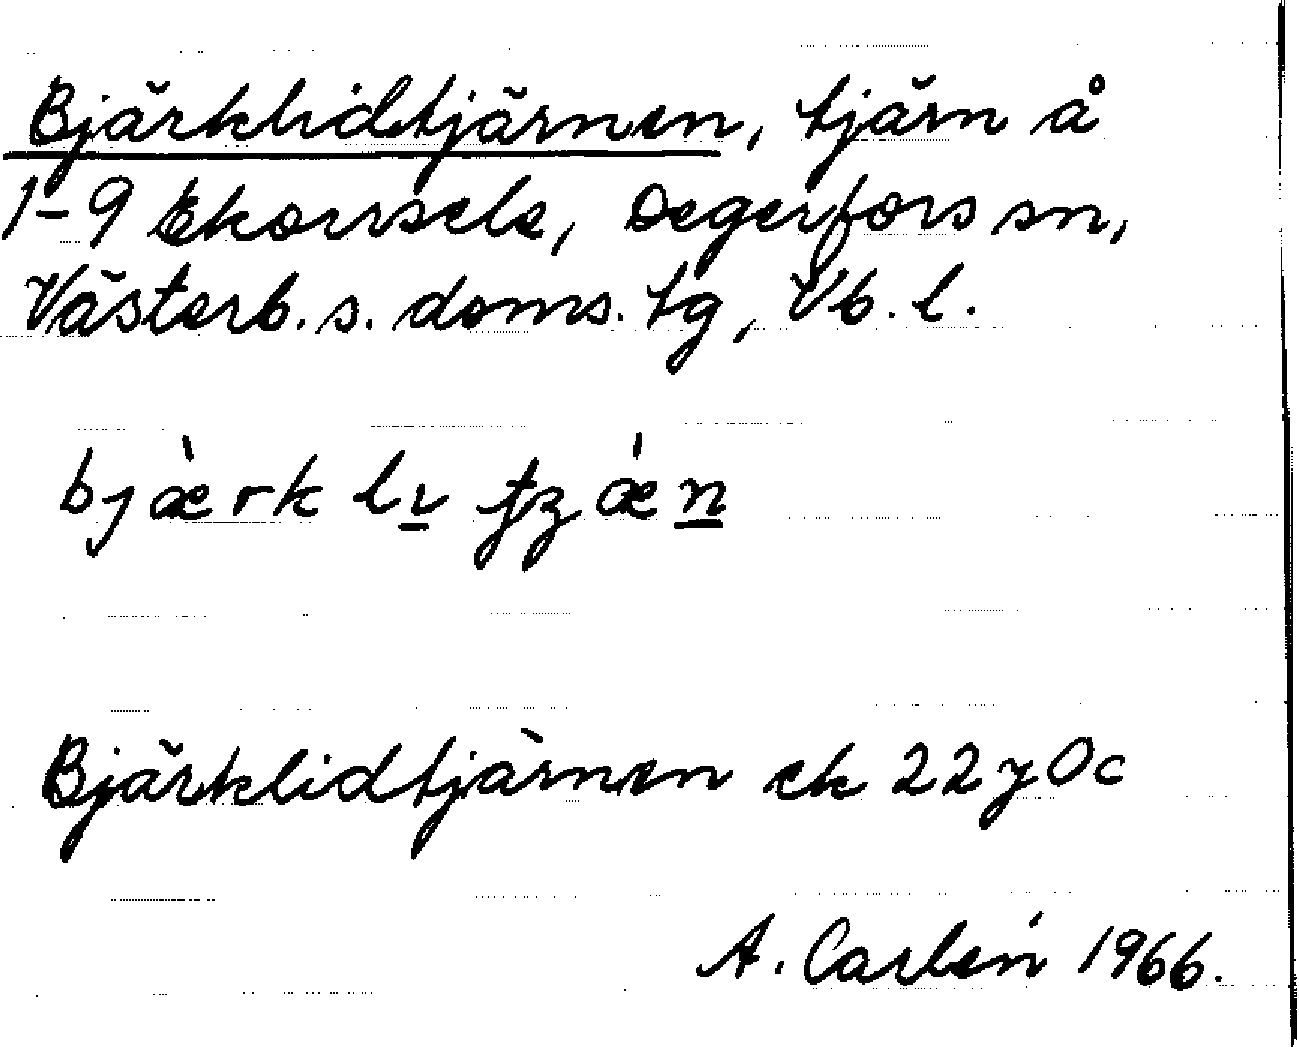 Bjärklidtjärnen, tjärn å
1-9 Ekorrsele, Degerfors sn,
Västerb. s. doms. tg, Vb. l.
Bjärklidtjärnen ek 22 y 0 c
A. Carlén 1966.